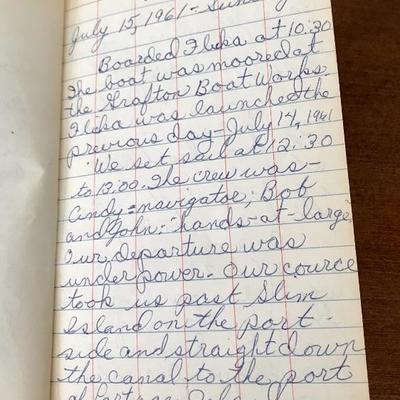 July 15, 1961 - Sunday
Boarded Flika at 10:30
The boat was moored at
the Grafton Boat Works.
Flika was launched the
previous day - July 14, 1961
We set sail at 12:30
to 13:00. The crew was -
Andy = navigator; Bob
and John: "hands-at-large"
Our departure was
under power. Our cource
took us past Slim
Island on the port -
side and straight down
the canal to the port
of